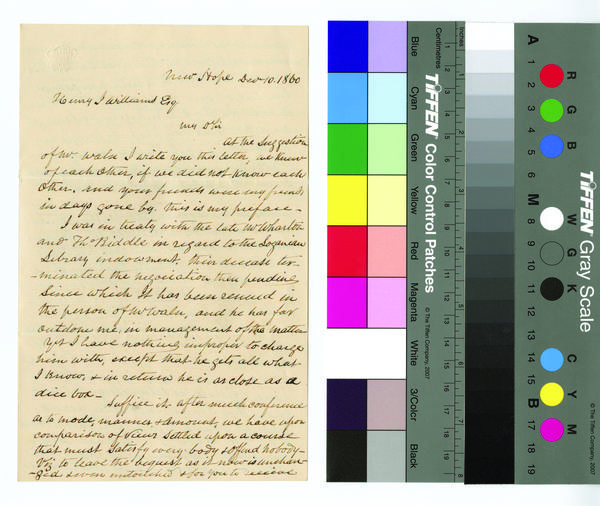 New Hope Dec 10. 1860
Henry J Williams Esq
my D Sir
At the Suggestion
of Mr. Waln I write you this letter, we knew
of each other, if we did not know each
Other. and your friends were my friends
in days gone by. this is my preface -
I was in treaty with the late Mr Wharton
and Thos Biddle in regard to the Loganian
Library indowment. their decease ter-
-minated the negociation then pending
Since which It has been renewed in
the person of Mr Waln, and he has far
outdone me, in management of the matter
yet I have nothing improper to charge
him with, except that he gets all what
I know, & in return he is as close as a
dice box -
Suffice it. after much conference
as to mode, manner & amount, we have upon
comparison of views Settled upon a course
that must Satisfy every body & offend nobody -
Viz to leave the bequest as it now is unchan-
-ged & even untouched & for you to receive
Inches
Centimetres
TIFFEN® Color Control Patches
© The Tiffen Company, 2007
Blue
Cyan
Green
Yellow
Red
Magenta
White
3/Color
Black
1
2
3
4
5
6
7
8
TIFFEN® Gray Scale
© The Tiffen Company, 2007
A
1
2
3
4
5
6
M
8
9
10
11
12
13
14
15
B
17
18
19
R
G
B
W
G
K
C
Y
M